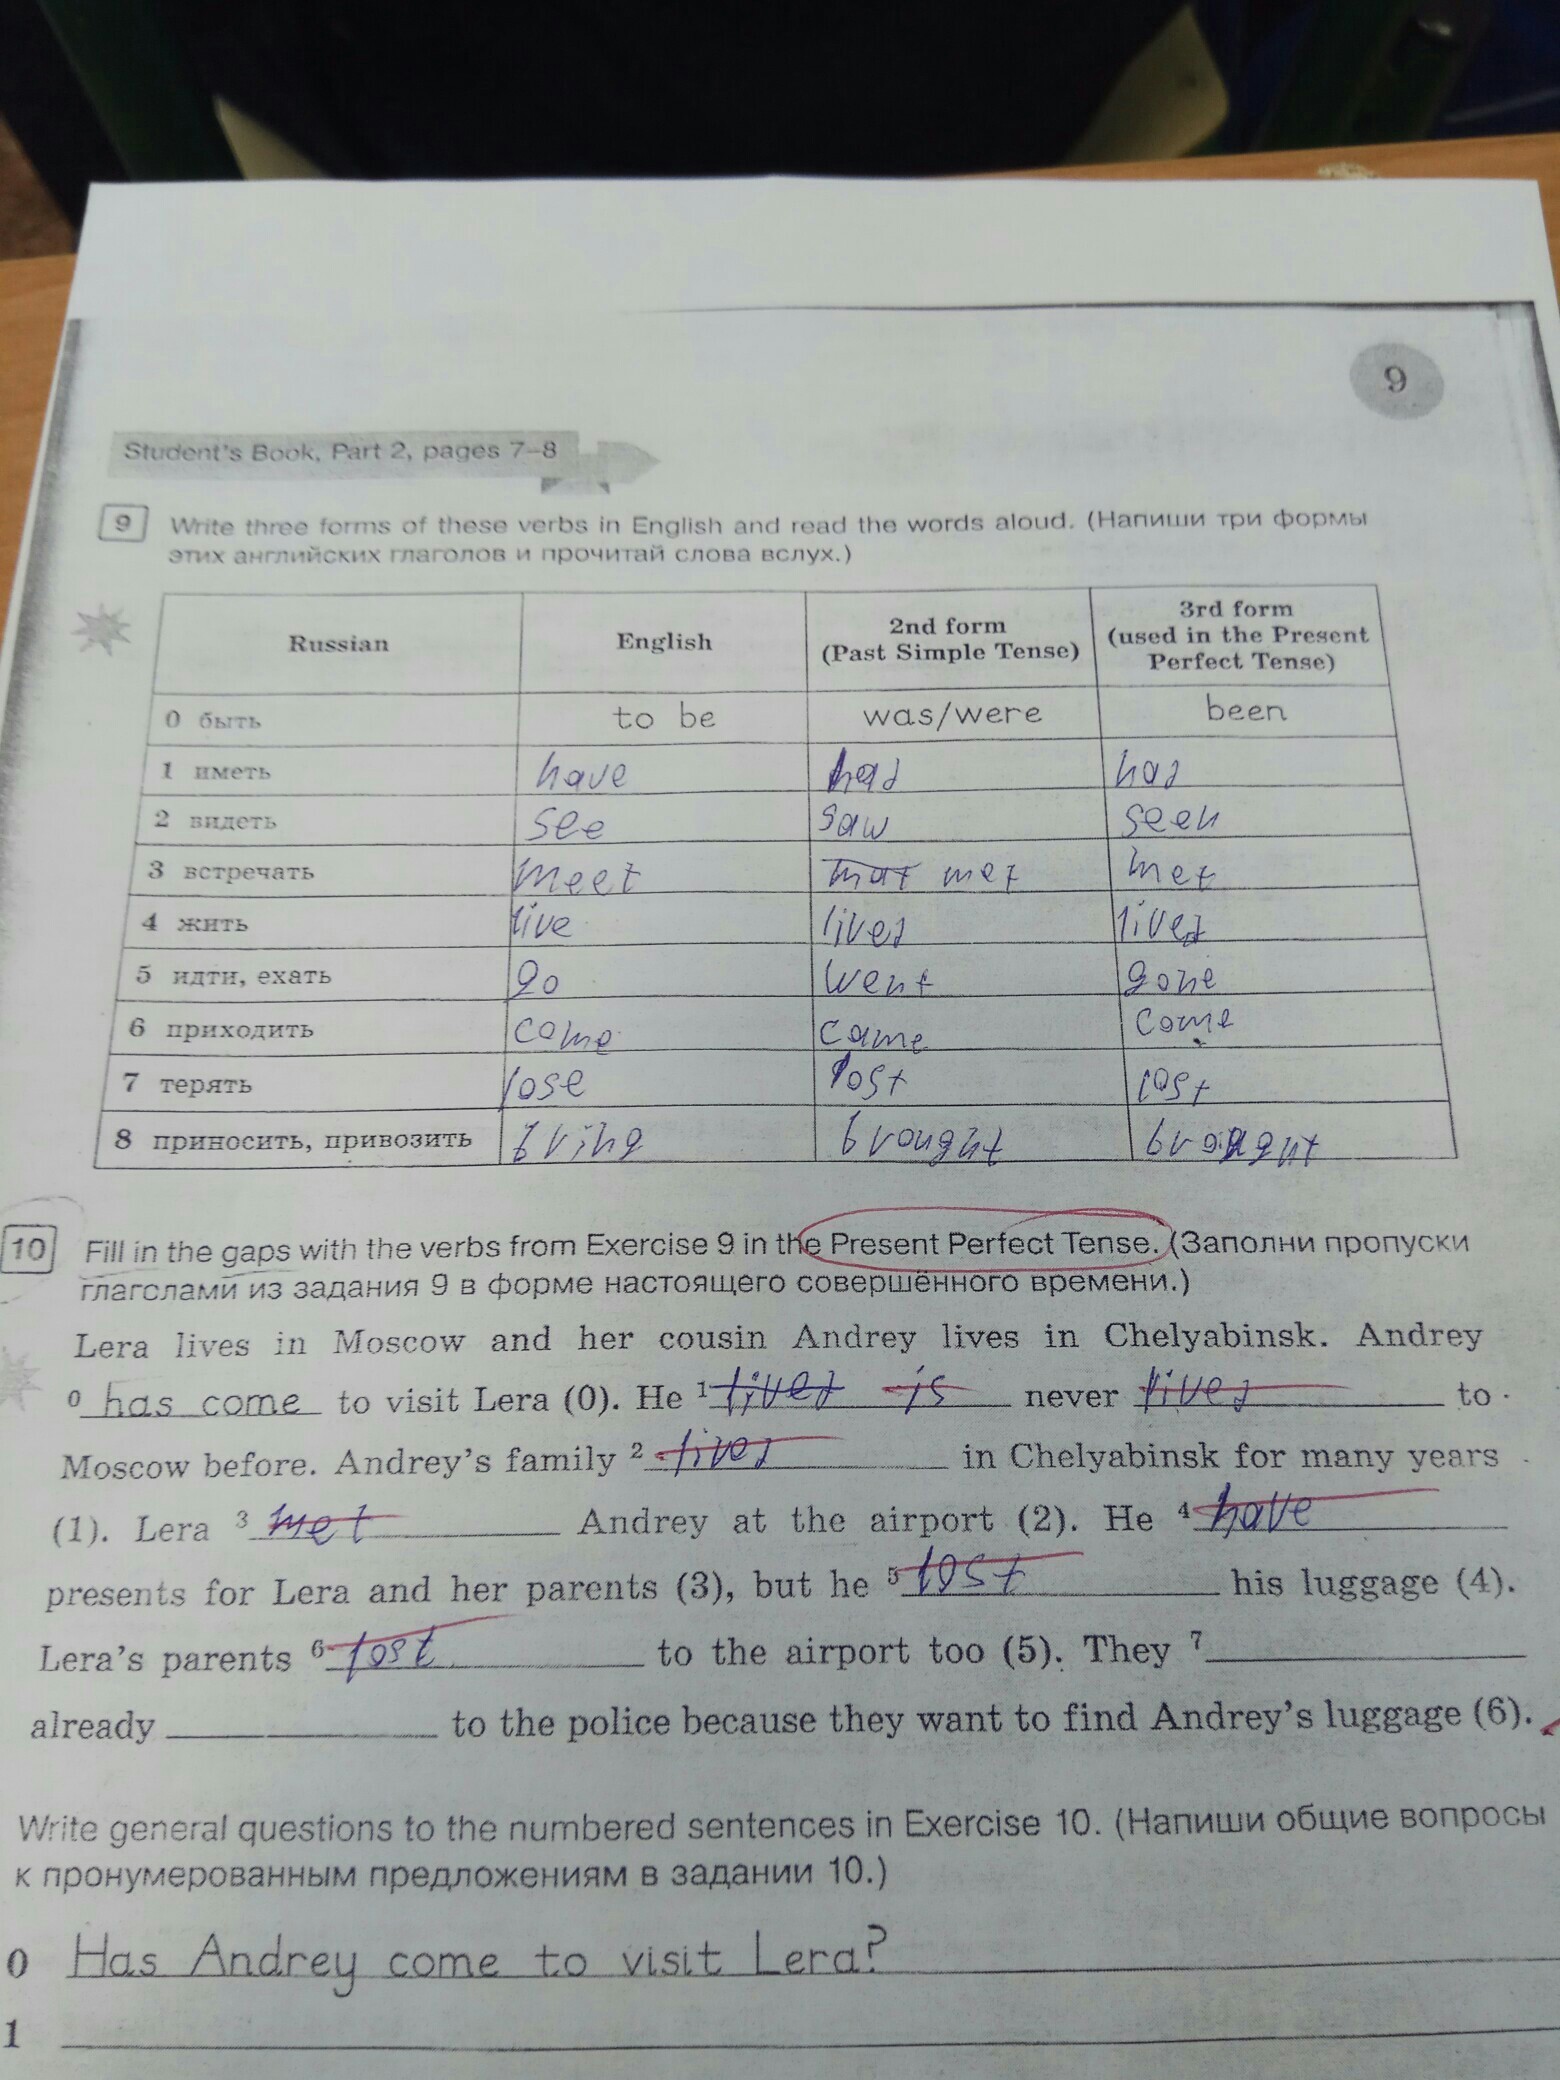 9
Student's Book, Part 2, pages 7–8
9 Write three forms of these verbs in English and read the words aloud. (Напиши три формы
этих английских глаголов и прочитай слова вслух.)
Russian English 2nd form (Past Simple Tense) 3rd form (used in the Present Perfect Tense)
0 быть to be was/were been
1 иметь have had had
2 видеть see saw seen
3 встречать meet met met
4 жить live lived lived
5 идти, ехать go went gone
6 приходить come came come
7 терять lose lost lost
8 приносить, привозить bring brought brought
10 Fill in the gaps with the verbs from Exercise 9 in the Present Perfect Tense. (Заполни пропуски
глаголами из задания 9 в форме настоящего совершённого времени.)
Lera lives in Moscow and her cousin Andrey lives in Chelyabinsk. Andrey
0 has come to visit Lera (0). He 1 lived is never lived to
Moscow before. Andrey's family 2 lived in Chelyabinsk for many years
(1). Lera 3 met Andrey at the airport (2). He 4 have
presents for Lera and her parents (3), but he 5 lost his luggage (4).
Lera's parents 6 lost to the airport too (5). They 7
already to the police because they want to find Andrey's luggage (6).
Write general questions to the numbered sentences in Exercise 10. (Напиши общие вопросы
к пронумерованным предложениям в задании 10.)
0 Has Andrey come to visit Lera?
1